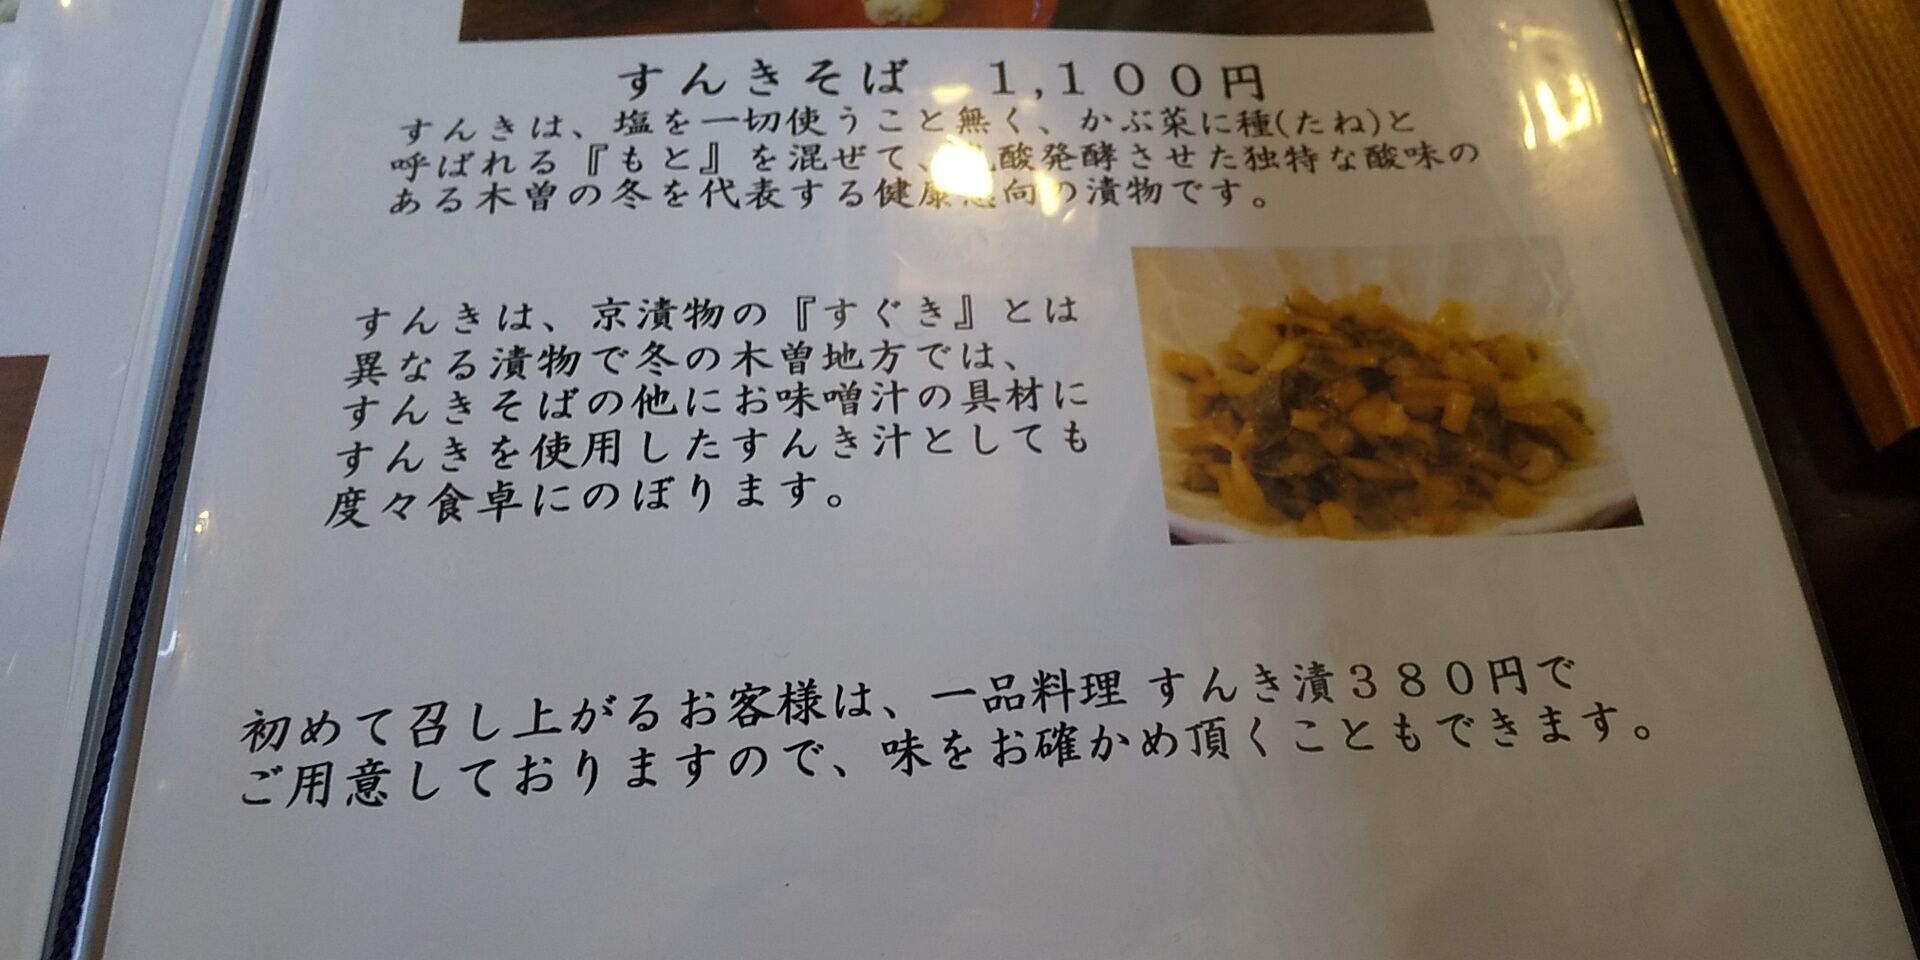 すんきそば　１,１００円
すんきは、塩を一切使うこと無く、かぶ菜に種(たね)と
呼ばれる『もと』を混ぜて、酸発酵させた独特な酸味の
ある木曽の冬を代表する健康向の漬物です。
すんきは、京漬物の『すぐき』とは
異なる漬物で冬の木曽地方では、
すんきそばの他にお味噌汁の具材に
すんきを使用したすんき汁としても
度々食卓にのぼります。
初めて召し上がるお客様は、一品料理 すんき漬３８０円で
ご用意しておりますので、味をお確かめ頂くこともできます。